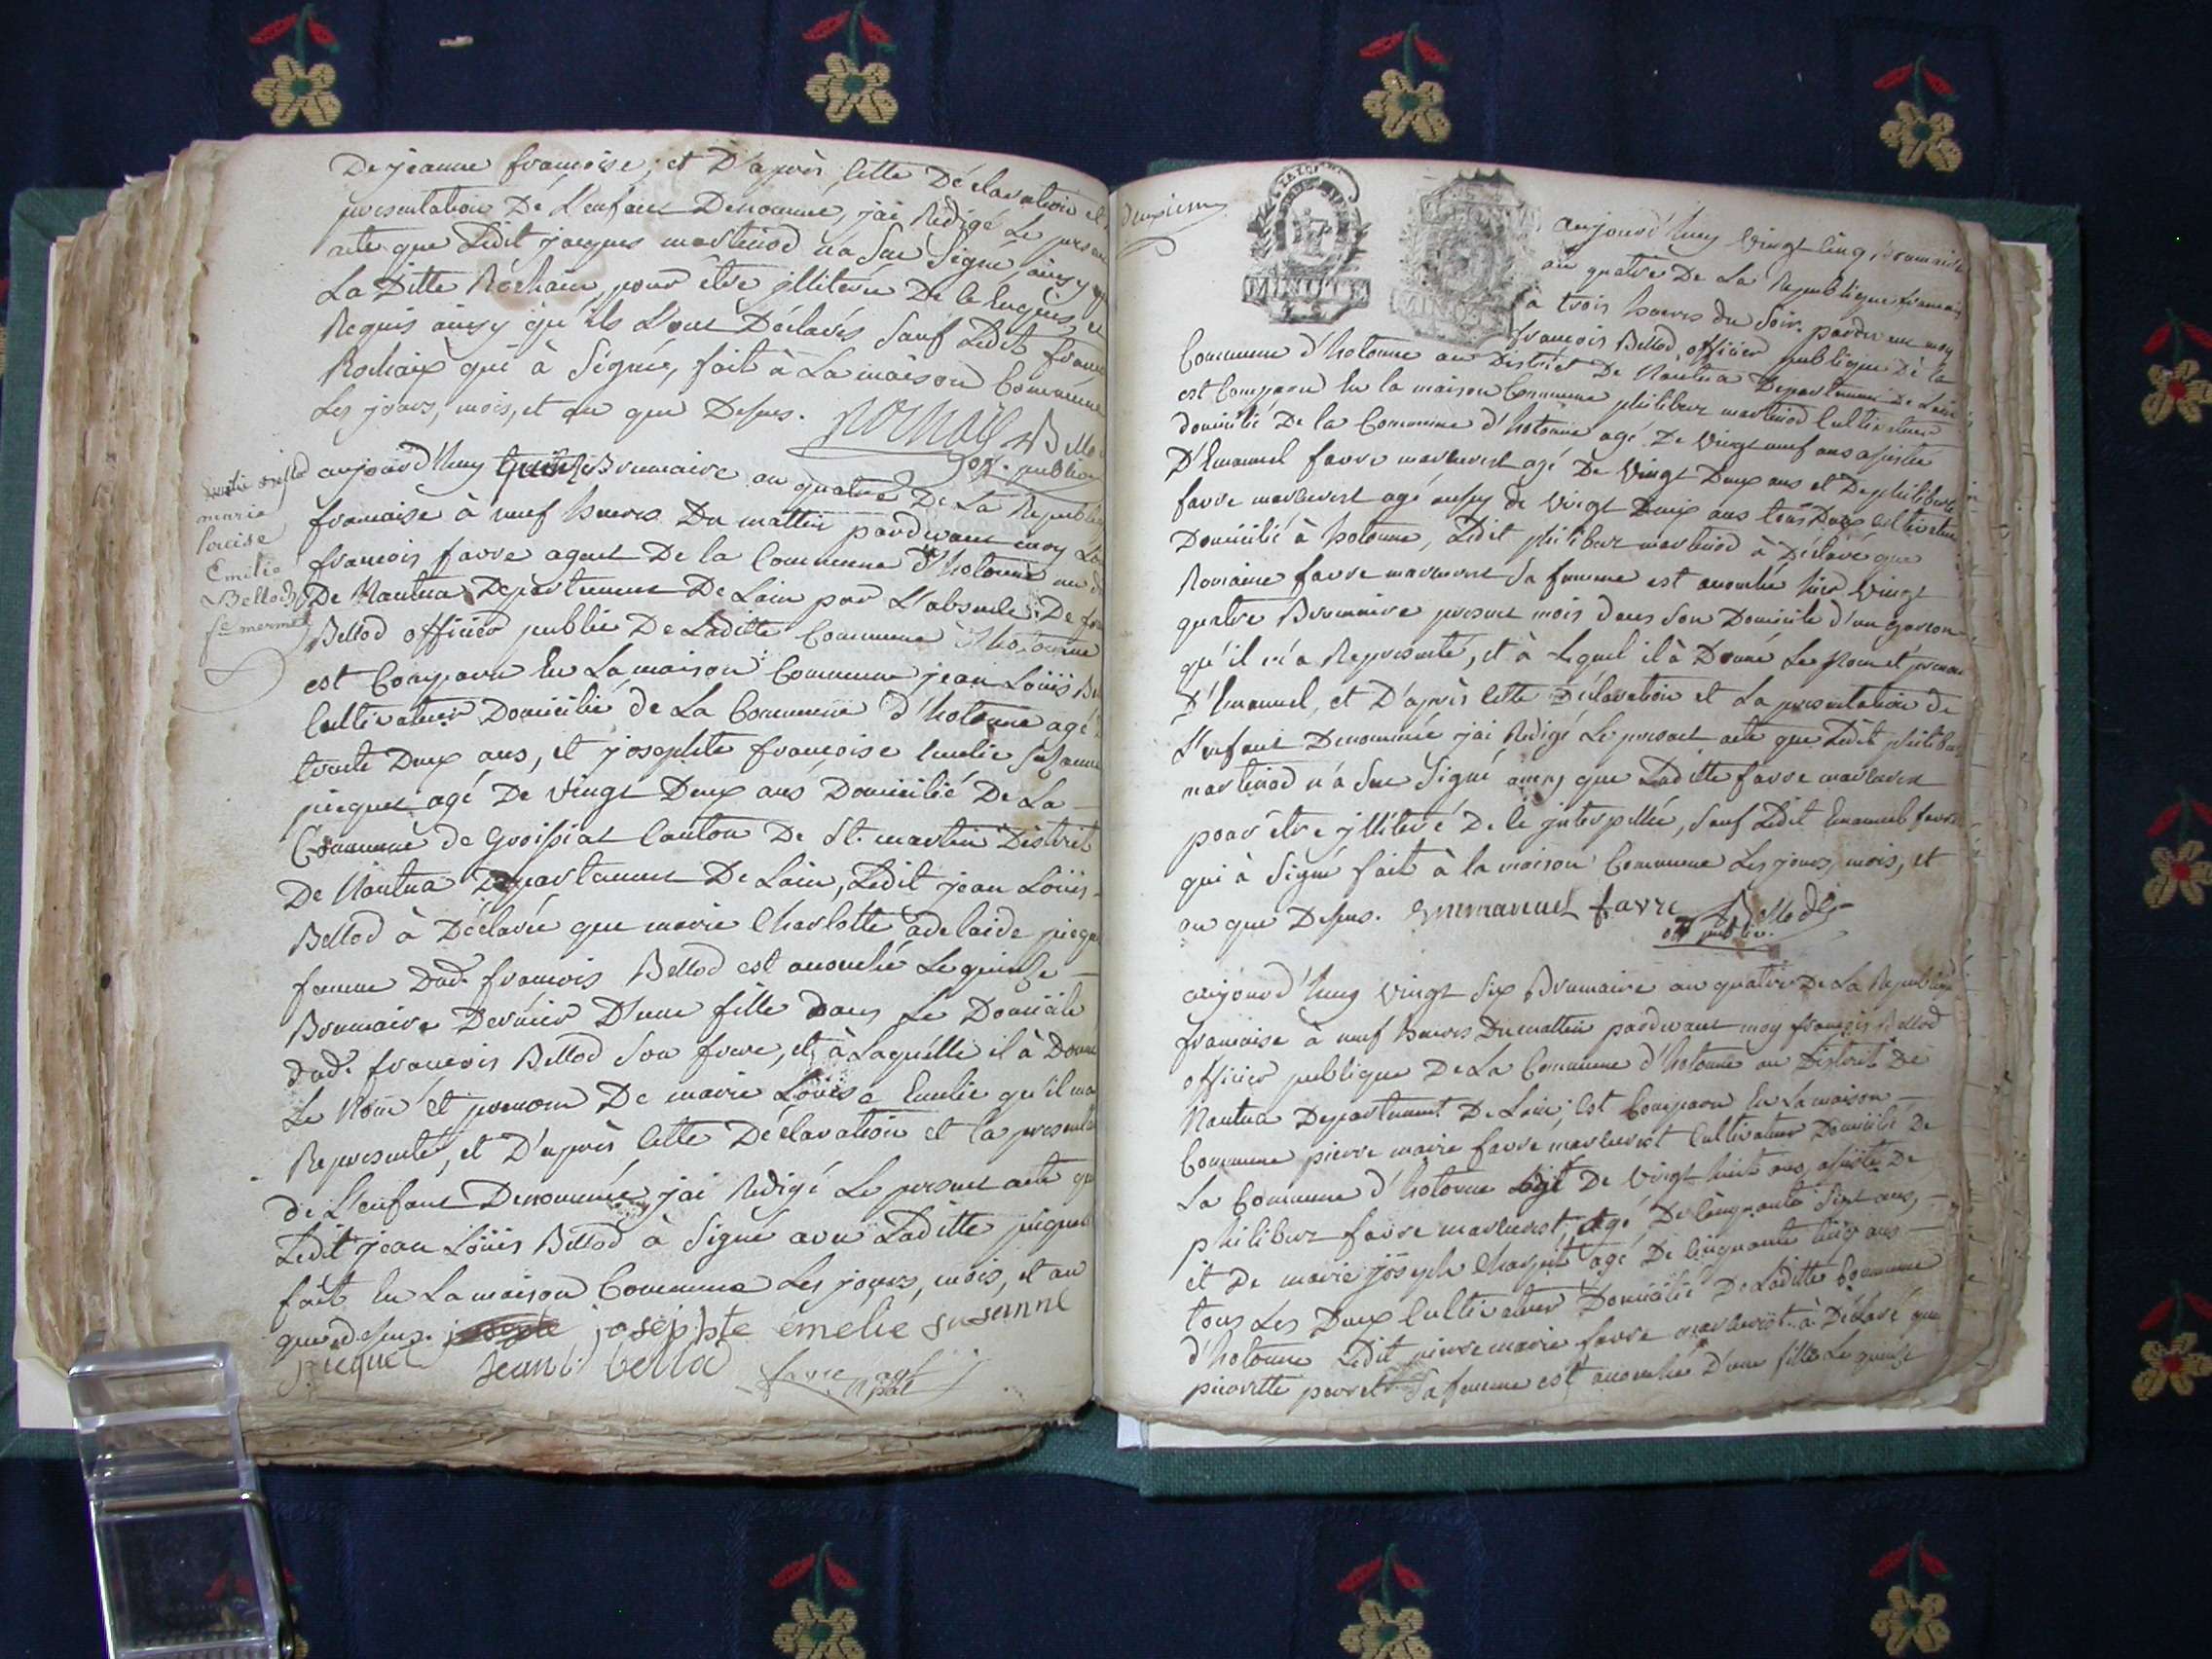 De jeanne francoise; et D'après Cette Déclaration et
presentation De L'enfant Denommé, jai Redigé Le present
acte que Ledit jacques martinod na Sue Signé, ainsy que
La Ditte Rochaix, pour être jlliterée De le Enquis, et
Requis ainsy qu'ils L'ont Déclarés, Sauf Ledit
Rochaix qui à Signée, fait à La maison Commune
Les jours, mois, et an que Dessus. Rochaix Bellod
off. public
aujourd'huy quinze Brumaire an quatre De La Republ
francaise à neuf heures Du mattin pardevant moy
francois favre agent De la Commune d'hotonne au
De Nantua Departement De Lain par L'absence De
Bellod officier public De Laditte Commune d'hotonne
est Comparu En La maison Commune jean Loüis
Cultivateur Domicilié de La Commune d'hotonne agé
trente Deux ans, et josephte françoise Emelie Susanne
picquet agé De vingt Deux ans Domicilié De La
Commune de Groissiat Canton De St. martin District
De Nantua Departement De Lain, Ledit jean Loüis
Bellod à Déclarée que marie Charlotte adelaide picqu
femme Dud. francois Bellod est acouchée Le quinze
Brumaire Dernier D'une fille dans Le Domicile
Dud. francois Bellod Son frere, et à Laquelle il à Donné
Le Nom et prenom De marie Loüise Emelie qu'il ma
Representé, et D'après Cette Déclaration et la presentat
de L'enfant Denommée, jai Redigé Le present acte que
Ledit jean Loüis Bellod à Signé avec Laditte picquet
fait En La maison Commune Les jours, mois, et an
que dessus. josephte émelie susanne
picquet Jean L. bellod favre agt
pal
marie
Louise
Emilie
Bellod
fe mermet
Deuxieme
MINUTES
aujourd'huy vingt Cinq Brumaire
an quatre De La Republique francaise
à trois heures du Soir pardevant moy
francois Bellod officier publique De la
Commune d'hotonne au District De Nantua Departement De Lain
est Comparu En la maison Commune philibert martinod Cultivateur
domicilié De la Commune d'hotonne agé De vingt neuf ans assisté
D'Emanuel favre marleurest agé De vingt Deux ans et De philiberte
favre marleurest agé aussy de vingt Deux ans tous Deux Cultivateur
Domicilié à hotonne, Ledit philibert martinod à Déclaré que
Romaine favre marleurest Sa femme est acouchée hier vingt
quatre Brumaire present mois dans Son Domicile d'un garcon
qu'il m'a Representé, et à Lequel il à Donné Le Nom et prenom
d'Emanuel, et D'après Cette Déclaration et La presentation de
L'enfant Denommée jai Redigé Le present acte que Ledit philibert
martinod n'à Sue Signé ainsy que Laditte favre marleurest
pour être jlliteré De le jnterpellée, Sauf Ledit Emanuel favre
qui à Signé fait à la maison Commune Les jours, mois, et
an que Dessus. Emmanuel favre Bellod
off public.
aujourd'huy vingt Six Brumaire an quatre De La Republique
francaise à neuf heures Du mattin pardevant moy francois Bellod
officier publique De La Commune d'hotonne au District De
Nantua Departement De Lain, est Comparu En La maison
Commune pierre marie favre marleurest Cultivateur Domicilié De
La Commune d'hotonne agé De vingt huit ans, assisté De
philibert favre marleurest, agé De Cinquante Sept ans,
et De marie joseph Charpit agé De Cinquante Cinq ans
tous Les Deux Cultivateur Domicilié De Laditte Commune
d'hotonne Ledit pierre marie favre marleurest à Déclaré que
pierrette perret Sa femme est acouchée D'une fille Le quinze